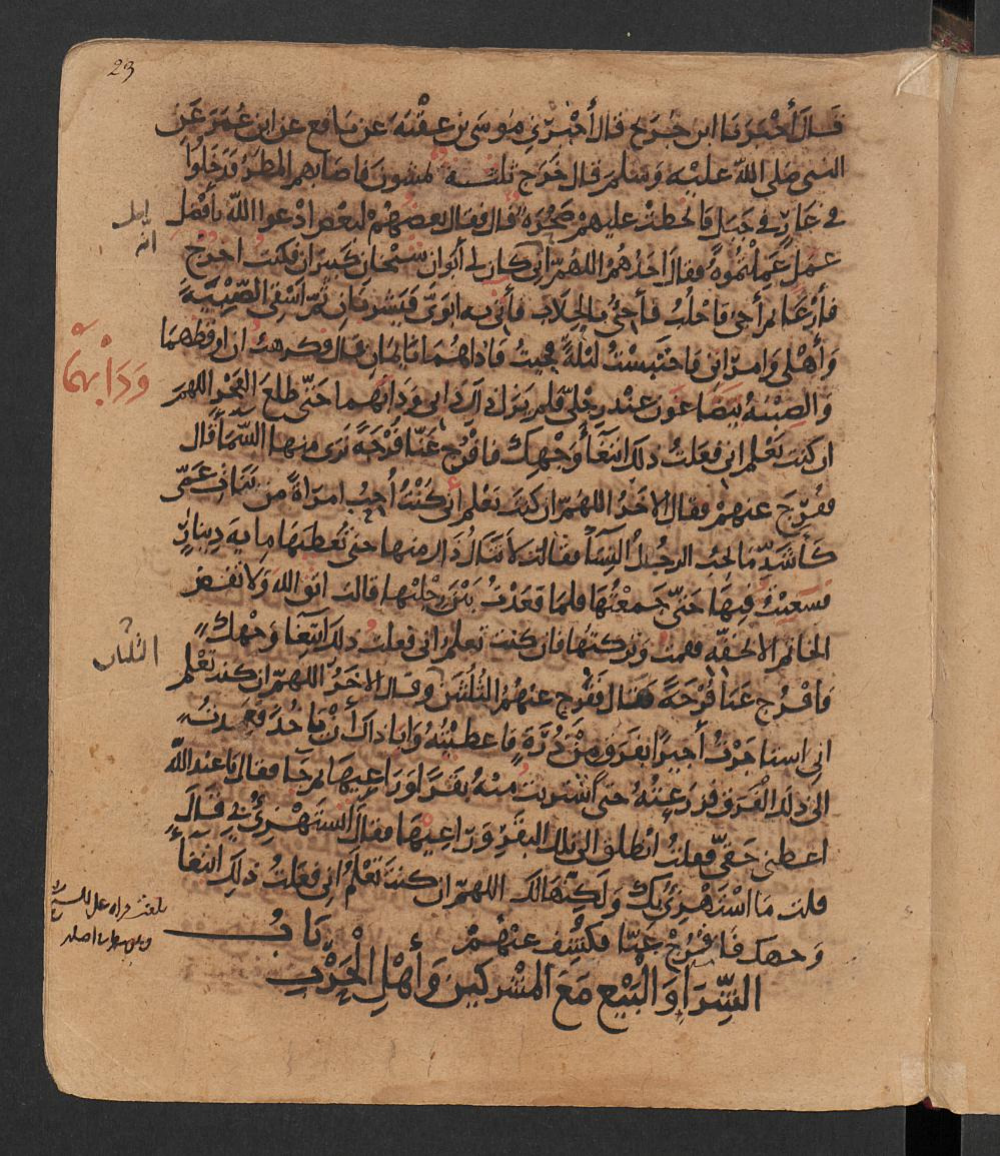 23
قَالَ أَخْبَرَنَا ابن جُرَيج قال أخْبَرَنِي مُوسَى بن عُقْبَةَ عن نافع عن ابن عُمَرَ عَن
النبي صَلى اللهُ عليْه وَسَلم قال خَرَج ثلثة يمشون فاصَابهم المطرُ فدَخلوا
في غارٍ في جَبَل فانحطتْ عليهمْ صَخْرَةٌ قال فقال بعضهُمْ لبعْض ادْعوا اللهَ بأفضل
عمَل عَمِلْتُمُوهُ فقالَ احَدُهُمْ اللهُمّ اني كان لي أبَوان شيْخان كَبيرَان فكنتُ اخرُج
فأرْعَا ثم أجئُ فَاحْلُبُ فأجئُ بالحِلَاب فأتي به ابوَيَّ فيَشربَان ثمّ اسْقي الصِّبْيَةَ
وَأهْلي وَامرَاتي فاحْتَبسْتُ ليْلةً فجئتُ فاذا هُمَا نَائمان قال فكرهتُ ان اوقظهمَا
وَالصِبْيَةُ يتضَاغون عنْد رِجْلَيَّ فلم يزل ذلك دَابي وَدَابَهما حَتّى طلعَ الفَجْرُ اللهمّ
ان كنت تَعْلم اني فعَلتُ ذلك ابتغآءَ وَجْهِكَ فافْرُج عَنّا فُرْجَةً نرَى منها السّمآءَ قال
ففُرِّجَ عنهمْ وقال الاخَرُ اللهُمّ ان كنتَ تَعْلم أني كُنْتُ أحبُّ امرَأةً من بَنَات عَمّي
كأشَدِّ مَا يحبُّ الرجُلُ النسآءَ فقالت لا تنَالُ ذَاك منها حتى تُعْطيَهَا ماية دِينارٍ
فسَعيْتُ فيهَا حَتّى جَمعْتُهَا فلما قعَدْتُ بَيْنَ رِجْلَيْها قالت اتق الله وَلا تفضّ
الخاتم الا بحقّه فقمت وَتركتها فان كنت تعلم اني فعلتُ ذلك ابتغآءَ وَجْهك
فافْرُج عَنا فُرْجَةً قال فَفَرَج عنهُمُ الثُلُثيْن وقال الاخَرُ اللهُمّ ان كنت تعْلم
اني اسْتاجَرْتُ أجيرًا بفَرَقٍ مِنْ ذُرَةٍ فاعطيْتُهُ وَابا ذاك أنْ يَاخُذَ فعَمَدتُ
الى ذلك الفَرَق فزرَعتُهُ حتى اشتريتُ منْهُ بقَرًا وَرَاعِيهَا ثم جَا فقال يا عبد الله
اعطني حَقّي فقلتُ انْطلق الى تلك البقرِ وَرَاعيهَا فقالَ أتستهْزِئُ بي قالَ
فقلت مَا اسْتَهْزِئُ بكَ وَلكنّهَا لكَ اللهمّ ان كنتَ تَعْلَمُ اني فعَلتُ ذلكَ ابتغآءَ
وَجهك فَافرُجْ عَنّا فكُشِفَ عنهُمْ بَابُ
الشِّرَآءِ وَالبَيْع مَعَ المشركين وَأهْلِ الحَرْبِ
وَدَابَهُمَا
الثلثان